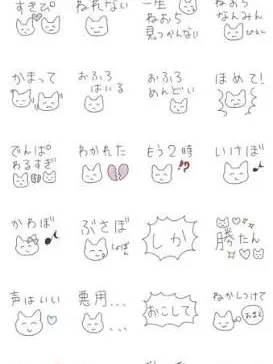 すきぴ。
ねれない
一生
ねおち
見つかんない
ねおち
なんみん
かまって
おふろ
はいる
おふろ
めんどい
ほめて!
でんぱ。
わるすぎ
わかれた
もう2時
!?
いけぼ
かわぼ
ぶさぼ
しか
勝たん
声はいい
悪用...
おこして
ねかしつけて